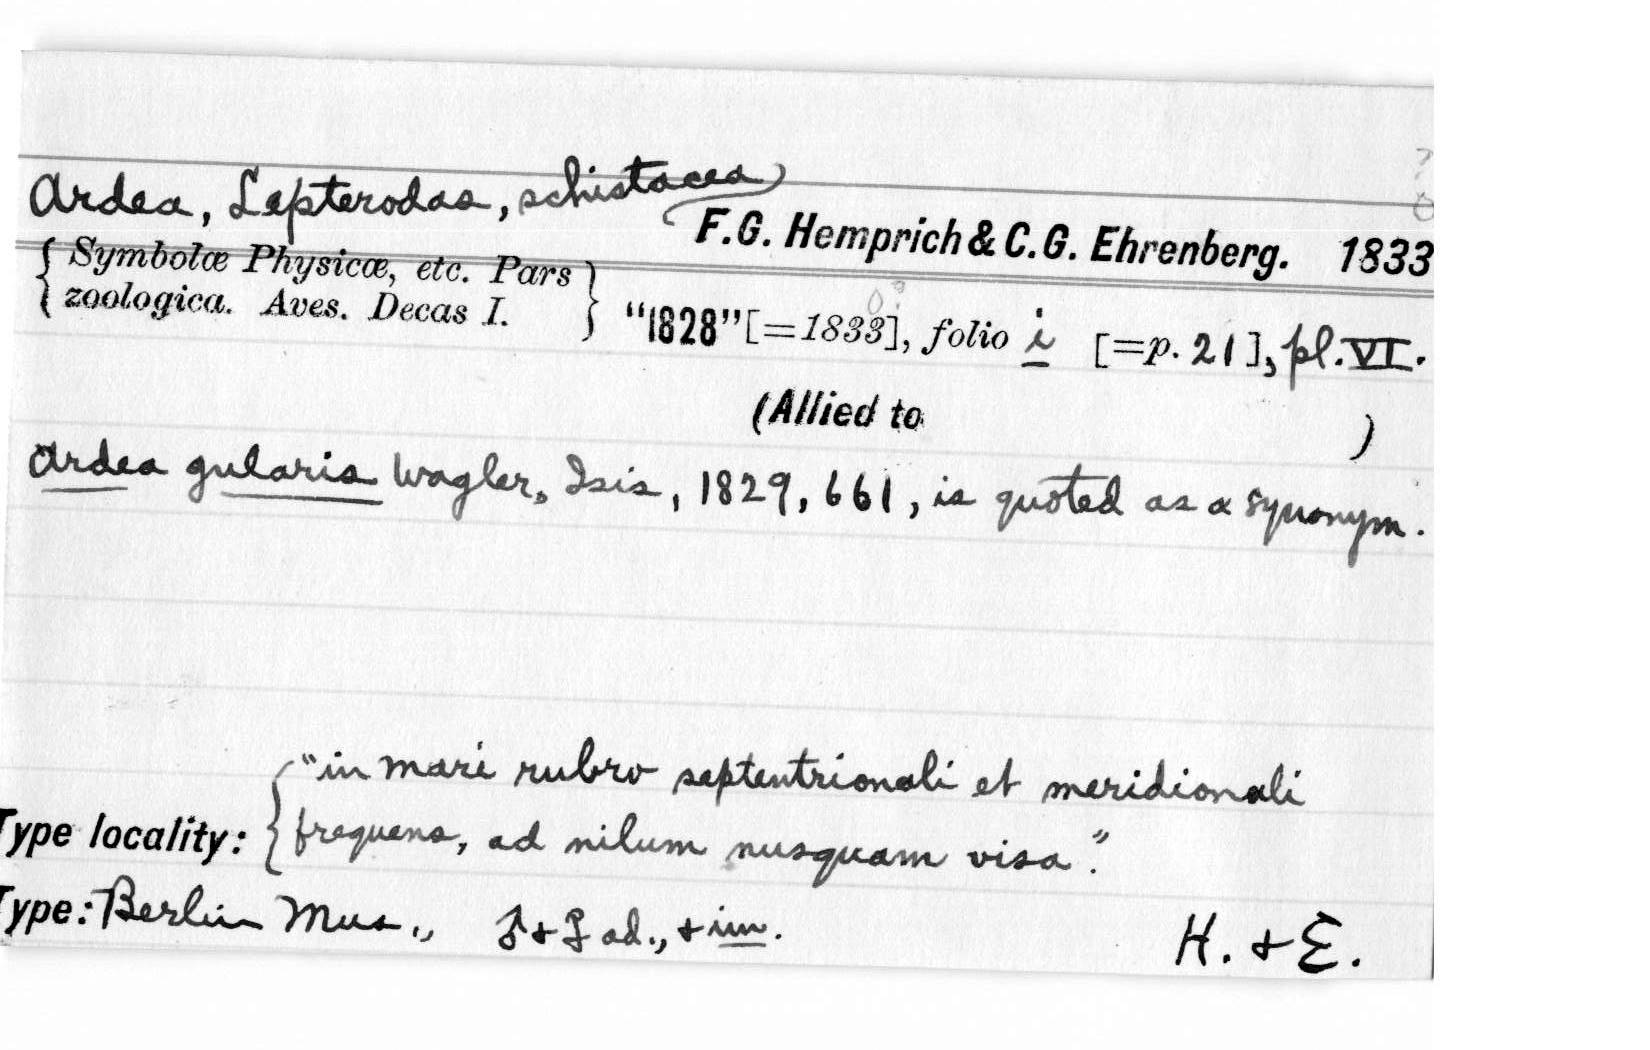 Ardea, Lepterodas, schistacea
F.G. Hemprich & C.G. Ehrenberg. 1833
{ Symbolæ Physicæ, etc. Pars
zoologica. Aves. Decas I. } "1828" [=1833], folio i [=p. 21], pl. VI.
(Allied to )
Ardea gularis Wagler, Isis, 1829, 661, is quoted as a synonym.
{ "in mari rubro septentrionali et meridionali
Type locality: frequens, ad nilum nusquam visa".
Type: Berlin Mus., ♂ + ♀ ad., + im. H. + E.